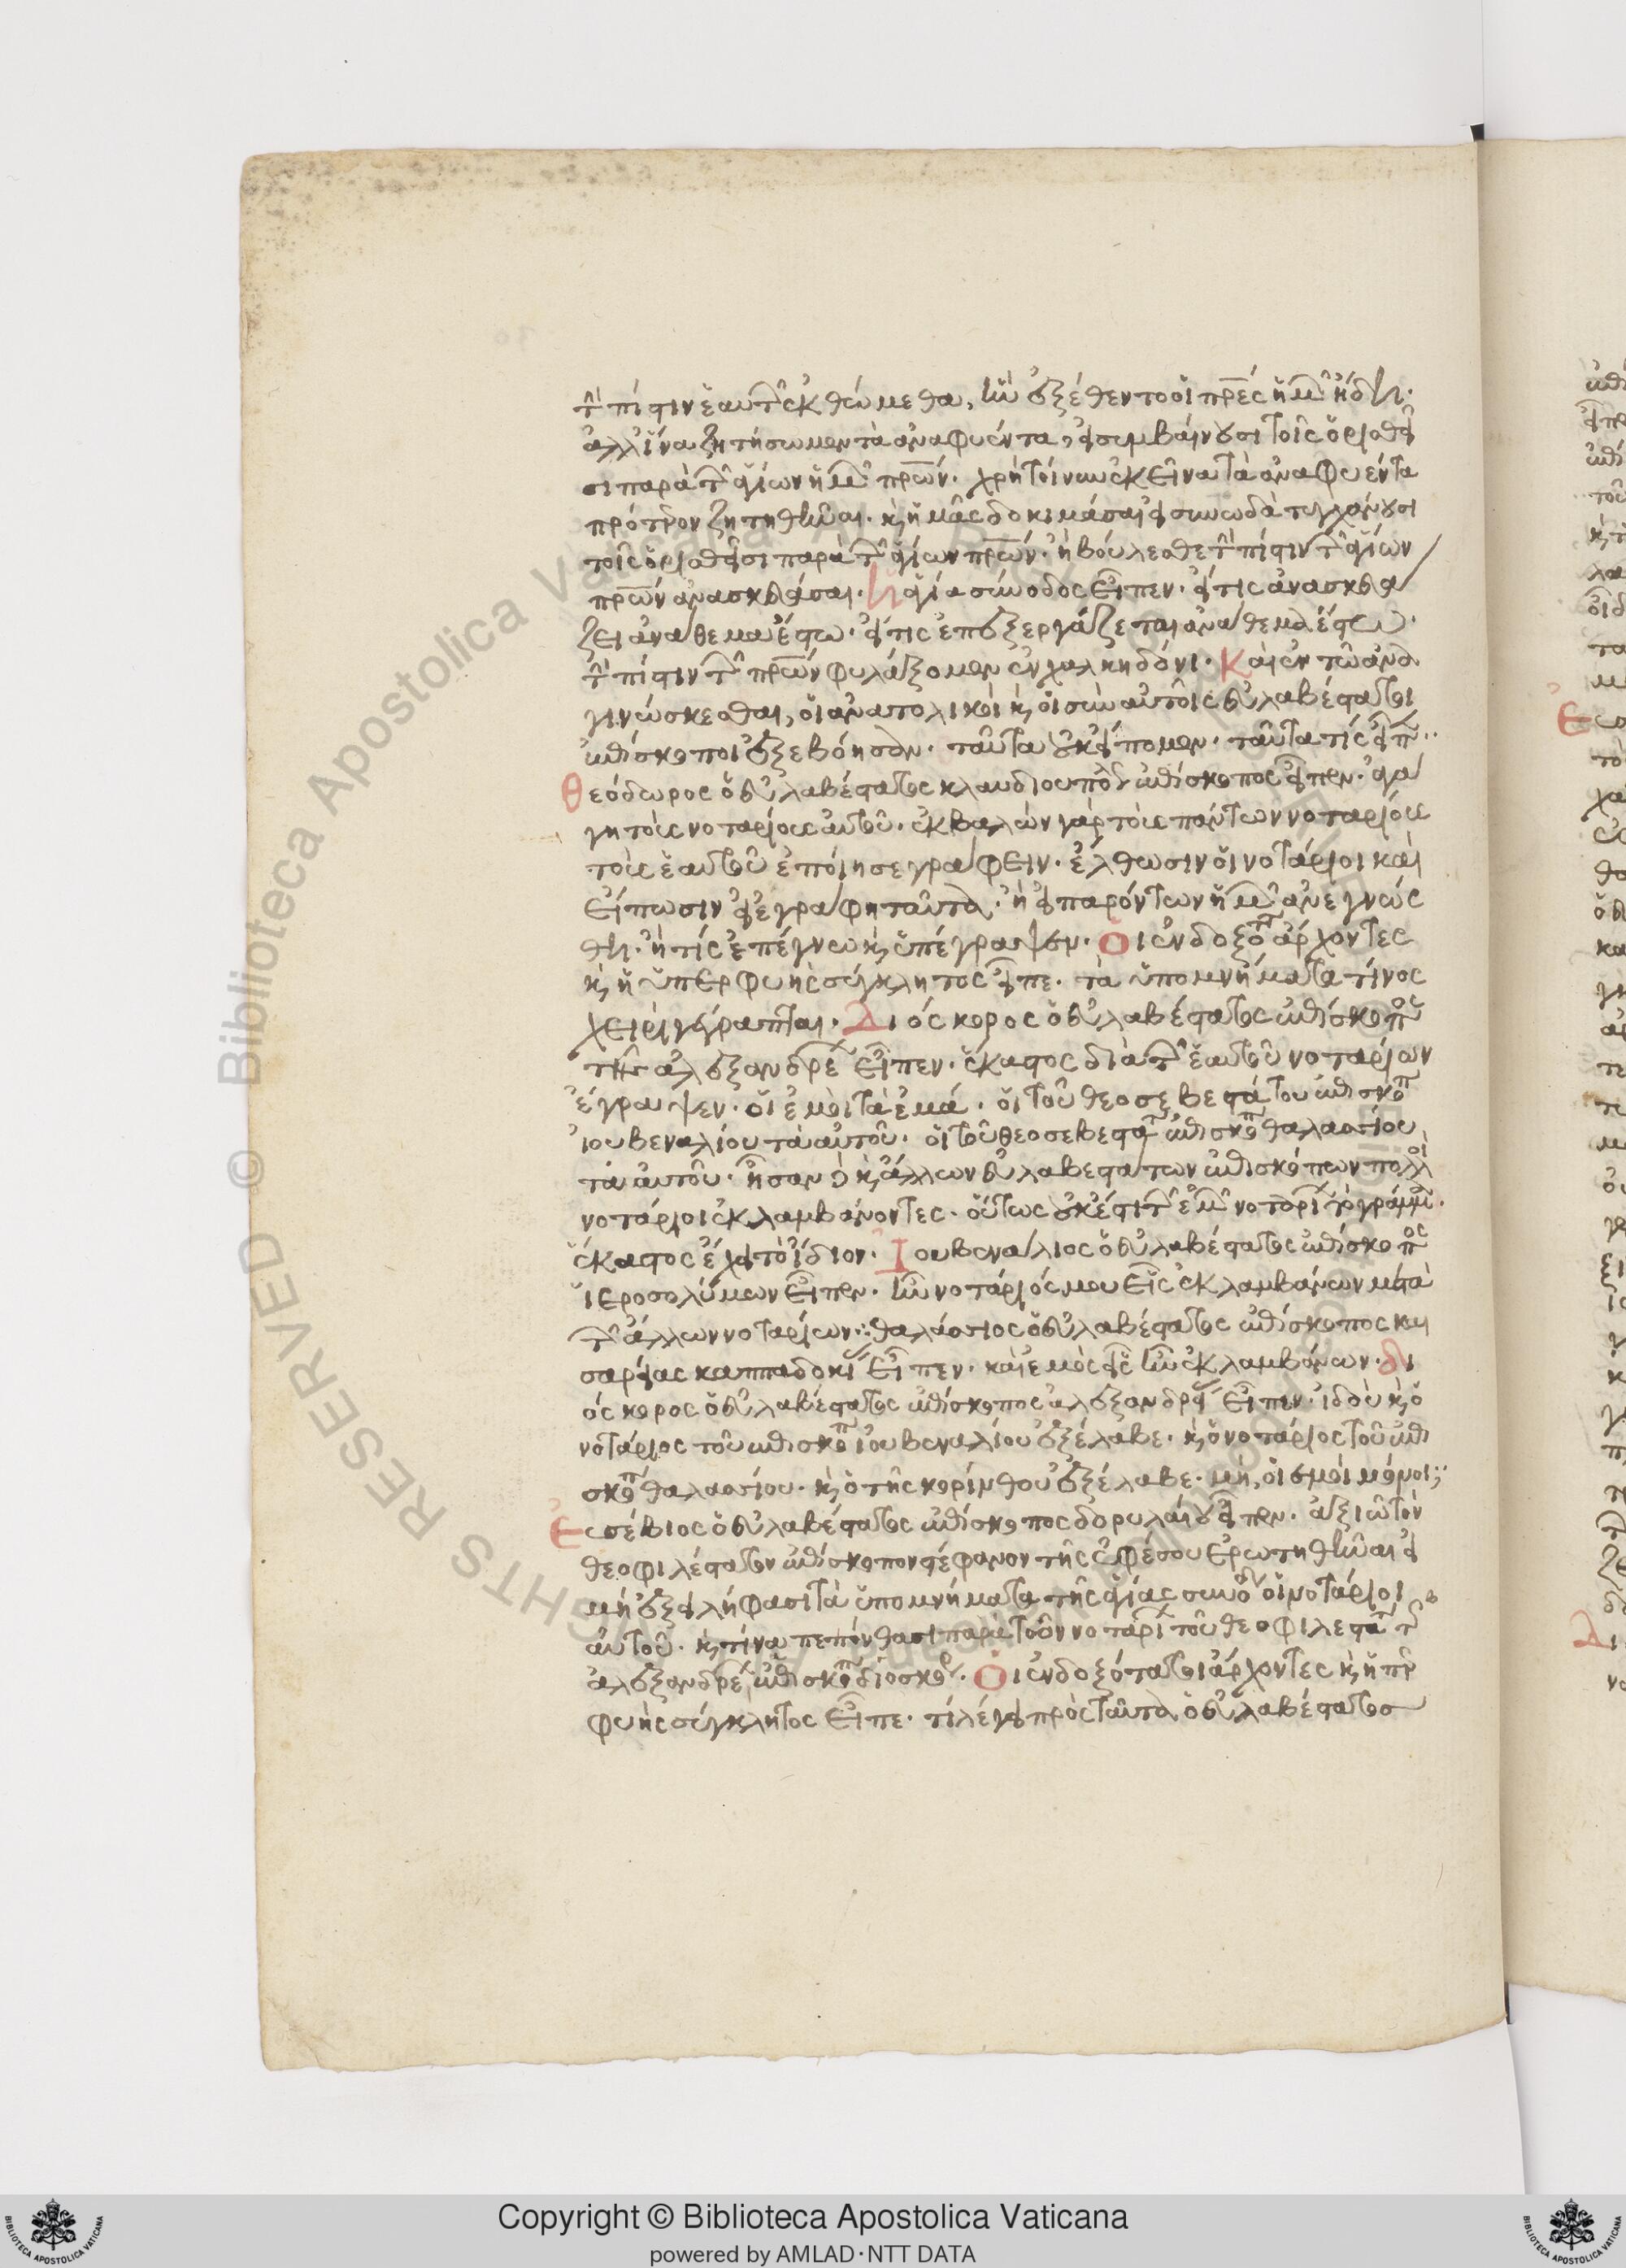 τὴν πίστιν ἑαυτῶν ἐκθώμεθα, ἣν ἐξέθεντο οἱ πρ̅ε̅ς ἡμῶν ἤδη.
ἀλλ' ἵνα ζητήσωμεν τὰ ἀναφυέντα, εἰ συμβαίνουσι τοῖς ὁρισθεῖ
σι παρὰ τῶν ἁγίων ἡμῶν πρ̅ω̅ν. χρὴ τοίνυν ἐκεῖνα τὰ ἀναφυέντα
πρότερον ζητηθῆναι. καὶ ἡμᾶς δοκιμάσαι εἰ συνωδὰ τυγχάνουσι
τοῖς ὁρισθεῖσι παρὰ τῶν ἁγίων πρ̅ω̅ν. ἢ βούλεσθε τὴν πίστιν τῶν ἁγίων
πρ̅ω̅ν ἀνασκευάσαι. ἡ ἁγία σύνοδος εἶπεν. εἴ τις ἀνασκευά
ζει ἀνάθεμα ἔστω. εἴ τις ἐπεξεργάζεται ἀνάθεμα ἔστω.
τὴν πίστιν τῶν πρ̅ω̅ν φυλάξομεν ἐν χαλκηδόνι. Καὶ ἐν τῶ ἀνα
γινώσκεσθαι, οἱ ἀνατολικοὶ καὶ οἱ σὺν αὐτοῖς εὐλαβέστατοι
ἐπίσκοποι ἐξεβόησαν. ταῦτα οὐκ εἴπομεν. ταῦτα τίς εἶπεν..
Θεόδωρος ὁ εὐλαβέστατος κλαυδιουπόλεως ἐπίσκοπος εἶπεν. ἀγά
γη τοὺς νοταρίους αὐτοῦ. ἐκβαλὼν γὰρ τοὺς πάντων νοταρίους
τοὺς ἑαυτοῦ ἐποίησε γράφειν. ἔλθωσιν οἱ νοτάριοι καὶ
εἴπωσιν εἰ ἐγράφη ταῦτα. ἢ εἰ παρόντων ἡμῶν ἀνεγνώσ
θη. ἢ τίς ἐπέγνω καὶ ὑπέγραψεν. Οἱ ἐνδοξότατοι ἄρχοντες
καὶ ἡ ὑπερφυὴς σύγκλητος εἶπε. τὰ ὑπομνήματα τίνος
χειρὶ γέγραπται. Διόσκορος ὁ εὐλαβέστατος ἐπίσκοπος
τῆς ἀλεξανδρείας εἶπεν. ἕκαστος διὰ τῶν ἑαυτοῦ νοταρίων
ἔγραψεν. οἱ ἐμοὶ τὰ ἐμά. οἱ τοῦ θεοσεβεστάτου ἐπισκόπου
ἰουβεναλίου τὰ αὐτοῦ. οἱ τοῦ θεοσεβεστάτου ἐπισκόπου θαλασσίου
τὰ αὐτοῦ. ἦσαν δὲ καὶ ἄλλων εὐλαβεστάτων ἐπισκόπων πολλοὶ
νοτάριοι ἐκλαμβάνοντες. οὕτως οὐκ ἔστι τῶν ἐμῶν νοταρίων τὸ γράμμα.
ἕκαστος ἔχει τὸ ἴδιον. Ἰουβενάλιος ὁ εὐλαβέστατος ἐπίσκοπος
ἱεροσολύμων εἶπεν. ἦν νοτάριός μου εἷς ἐκλαμβάνων μετὰ
τῶν ἄλλων νοταρίων. θαλάσσιος ὁ εὐλαβέστατος ἐπίσκοπος και
σαρείας καππαδοκίας εἶπεν. καὶ ἐμὸς εἷς ἦν ἐκλαμβάνων. Δι
όσκορος ὁ εὐλαβέστατος ἐπίσκοπος ἀλεξανδρείας εἶπεν. ἰδοὺ καὶ ὁ
νοτάριος τοῦ ἐπισκόπου ἰουβεναλίου ἐξέλαβε. καὶ ὁ νοτάριος τοῦ ἐπι
σκόπου θαλασσίου. καὶ ὁ τῆς κορίνθου ἐξέλαβε. μὴ, οἱ ἐμοὶ μόνοι;
Εὐσέβιος ὁ εὐλαβέστατος ἐπίσκοπος δορυλαίου εἶπεν. ἀξιῶ τὸν
θεοφιλέστατον ἐπίσκοπον στέφανον τῆς ἐφέσου ἐρωτηθῆναι εἰ
μὴ ἐξειλήφασι τὰ ὑπομνήματα τῆς ἁγίας συνόδου οἱ νοτάριοι
αὐτοῦ. καὶ τίνα πεπόνθασι παρὰ τῶν νοταρίων τοῦ θεοφιλεστάτου τῆς
ἀλεξανδρείας ἐπισκόπου διοσκόρου. Οἱ ἐνδοξότατοι ἄρχοντες καὶ ἡ ὑπερ
φυὴς σύγκλητος εἶπε. τί λέγει πρὸς ταῦτα ὁ εὐλαβέστατος
Copyright © Biblioteca Apostolica Vaticana
powered by AMLAD·NTT DATA